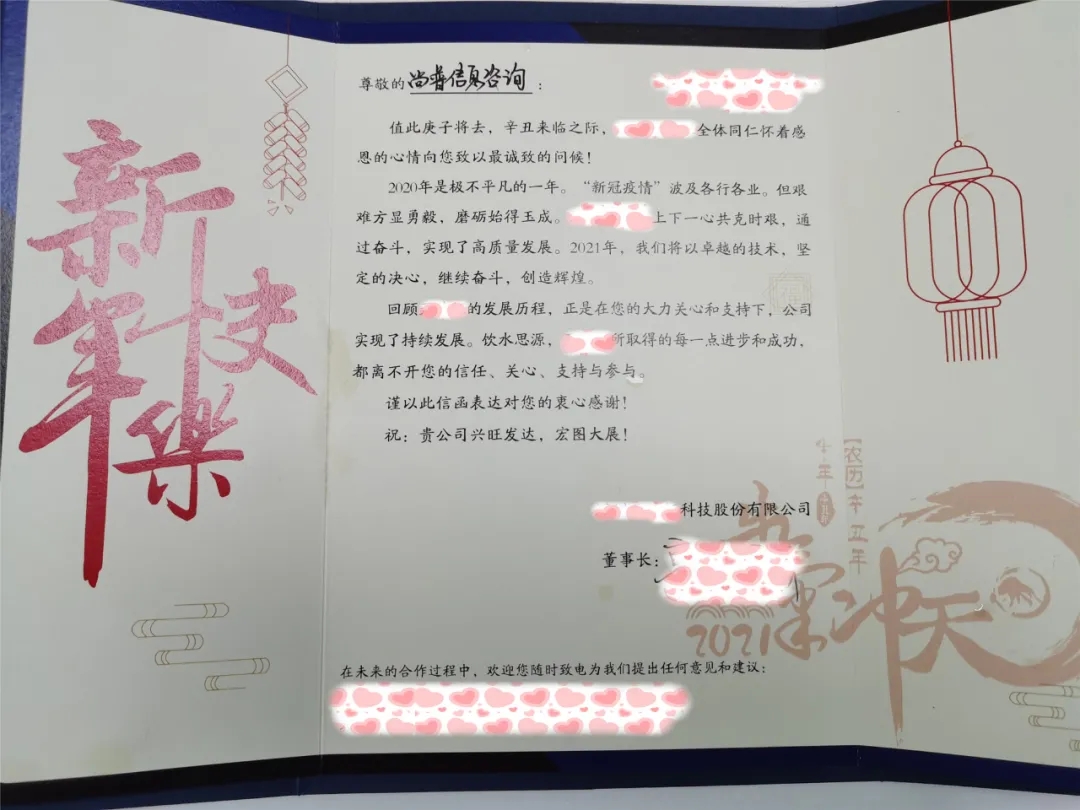 新年快樂
尊敬的尚普信息咨询：
值此庚子将去，辛丑来临之际，全体同仁怀着感
恩的心情向您致以最诚致的问候！
2020年是极不平凡的一年。“新冠疫情”波及各行各业。但艰
难方显勇毅，磨砺始得玉成。上下一心共克时艰，通
过奋斗，实现了高质量发展。2021年，我们将以卓越的技术，坚
定的决心，继续奋斗，创造辉煌。
回顾的发展历程，正是在您的大力关心和支持下，公司
实现了持续发展。饮水思源，所取得的每一点进步和成功，
都离不开您的信任、关心、支持与参与。
谨以此信函表达对您的衷心感谢！
祝：贵公司兴旺发达，宏图大展！
科技股份有限公司
董事长：
在未来的合作过程中，欢迎您随时致电为我们提出任何意见和建议：
【农历】辛丑年
牛年
冲天
2021